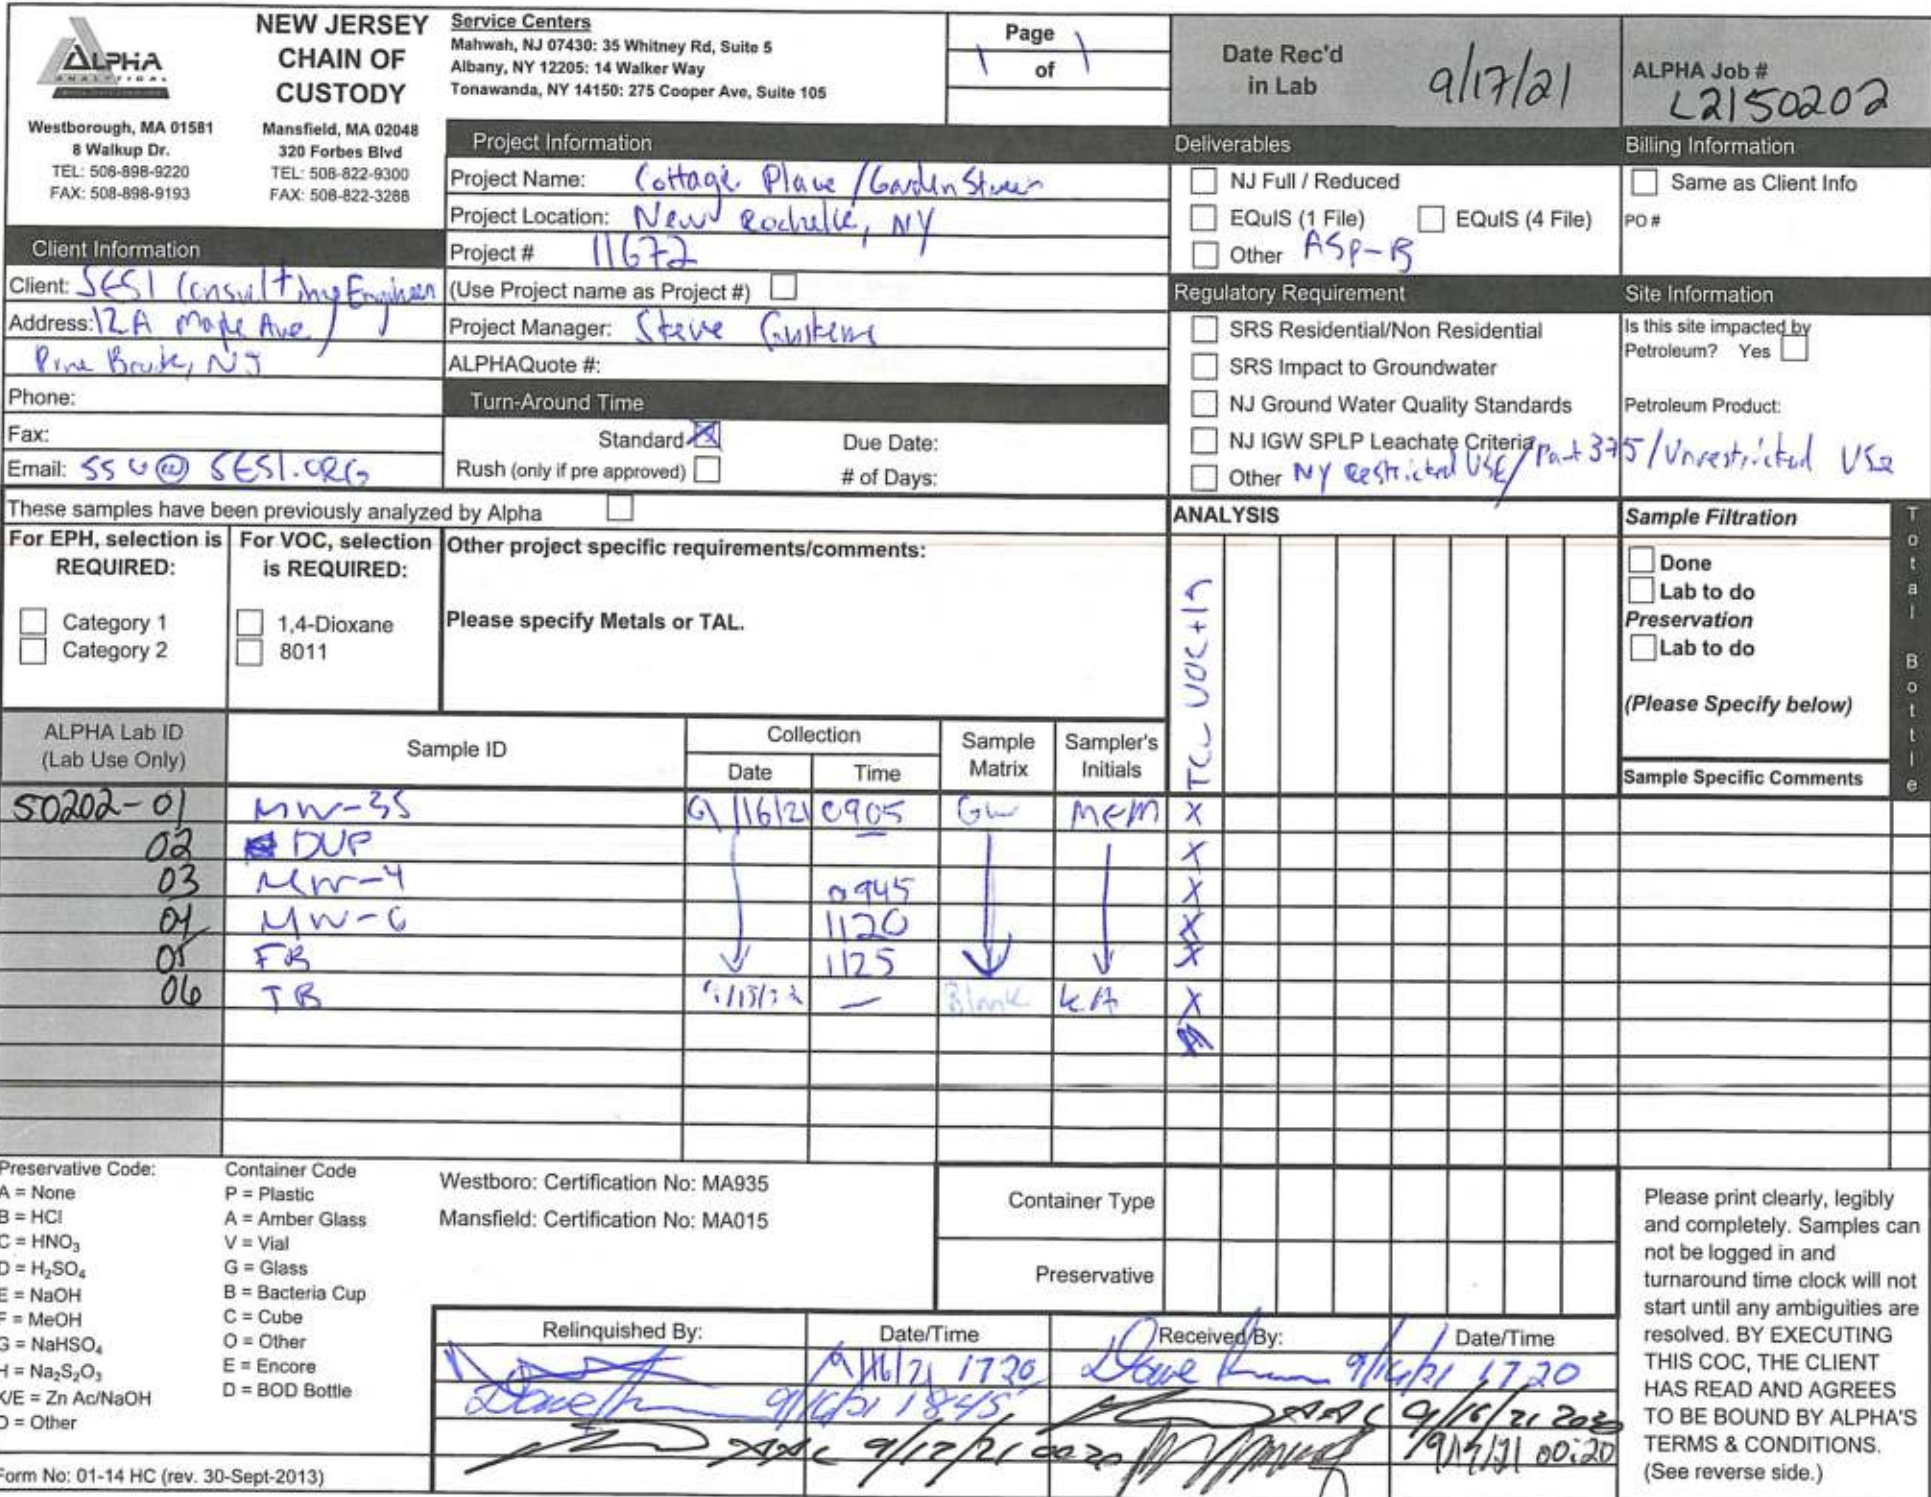 ALPHA
ANALYTICAL
NEW JERSEY
CHAIN OF
CUSTODY
Westborough, MA 01581
8 Walkup Dr.
TEL: 508-898-9220
FAX: 508-898-9193
Mansfield, MA 02048
320 Forbes Blvd
TEL: 508-822-9300
FAX: 508-822-3288
Service Centers
Mahwah, NJ 07430: 35 Whitney Rd, Suite 5
Albany, NY 12205: 14 Walker Way
Tonawanda, NY 14150: 275 Cooper Ave, Suite 105
Page
1 of 1
Date Rec'd
in Lab
9/17/21
ALPHA Job #
L2150202
Client Information
Client: SESI Consulting Engineers
Address: 12A Maple Ave
Pine Brook, NJ
Phone:
Fax:
Email: SSG@SESI.ORG
Project Information
Project Name: Cottage Place / Garden Street
Project Location: New Rochelle, NY
Project # 11672
(Use Project name as Project #)
Project Manager: Steve
ALPHAQuote #:
Turn-Around Time
Standard X
Due Date:
Rush (only if pre approved)
# of Days:
Deliverables
NJ Full / Reduced
EQuIS (1 File) EQuIS (4 File)
Other ASP-B
Billing Information
Same as Client Info
PO #
Regulatory Requirement
SRS Residential/Non Residential
SRS Impact to Groundwater
NJ Ground Water Quality Standards
NJ IGW SPLP Leachate Criteria
Other NY Restricted Use/Part 375/Unrestricted Use
Site Information
Is this site impacted by
Petroleum? Yes
Petroleum Product:
These samples have been previously analyzed by Alpha
For EPH, selection is
REQUIRED:
Category 1
Category 2
For VOC, selection
is REQUIRED:
1,4-Dioxane
8011
Other project specific requirements/comments:
Please specify Metals or TAL.
ANALYSIS
TCL VOC+15
Sample Filtration
Done
Lab to do
Preservation
Lab to do
(Please Specify below)
Total Bottle
ALPHA Lab ID
(Lab Use Only)
Sample ID
Collection
Date
Time
Sample
Matrix
Sampler's
Initials
Sample Specific Comments
50202-01 MW-3S 9/16/21 0905 GW MEM X
02 DUP X
03 MW-4 0945 X
04 MW-6 1120 X
05 FB 1125 X
06 TB — Blank KA X
Preservative Code:
A = None
B = HCl
C = HNO3
D = H2SO4
E = NaOH
F = MeOH
G = NaHSO4
H = Na2S2O3
K/E = Zn Ac/NaOH
O = Other
Container Code
P = Plastic
A = Amber Glass
V = Vial
G = Glass
B = Bacteria Cup
C = Cube
O = Other
E = Encore
D = BOD Bottle
Westboro: Certification No: MA935
Mansfield: Certification No: MA015
Container Type
Preservative
Relinquished By:
Date/Time
Received By:
Date/Time
9/16/21 1720
9/16/21 1720
9/16/21 1845
AAL 9/16/21 2030
AAL 9/17/21 0020
9/17/21 00:20
Please print clearly, legibly
and completely. Samples can
not be logged in and
turnaround time clock will not
start until any ambiguities are
resolved. BY EXECUTING
THIS COC, THE CLIENT
HAS READ AND AGREES
TO BE BOUND BY ALPHA'S
TERMS & CONDITIONS.
(See reverse side.)
Form No: 01-14 HC (rev. 30-Sept-2013)